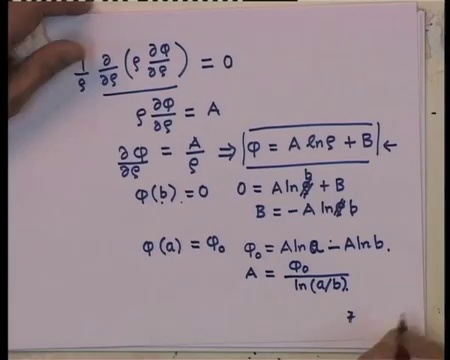 1/ρ ∂/∂ρ (ρ ∂Φ/∂ρ) = 0
ρ ∂Φ/∂ρ = A
∂Φ/∂ρ = A/ρ ⇒ |Φ = A lnρ + B| ←
Φ(b) = 0 0 = A ln b + B
B = -A ln b
Φ(a) = Φ₀ Φ₀ = A ln a - A ln b.
A = Φ₀/ln(a/b).
7